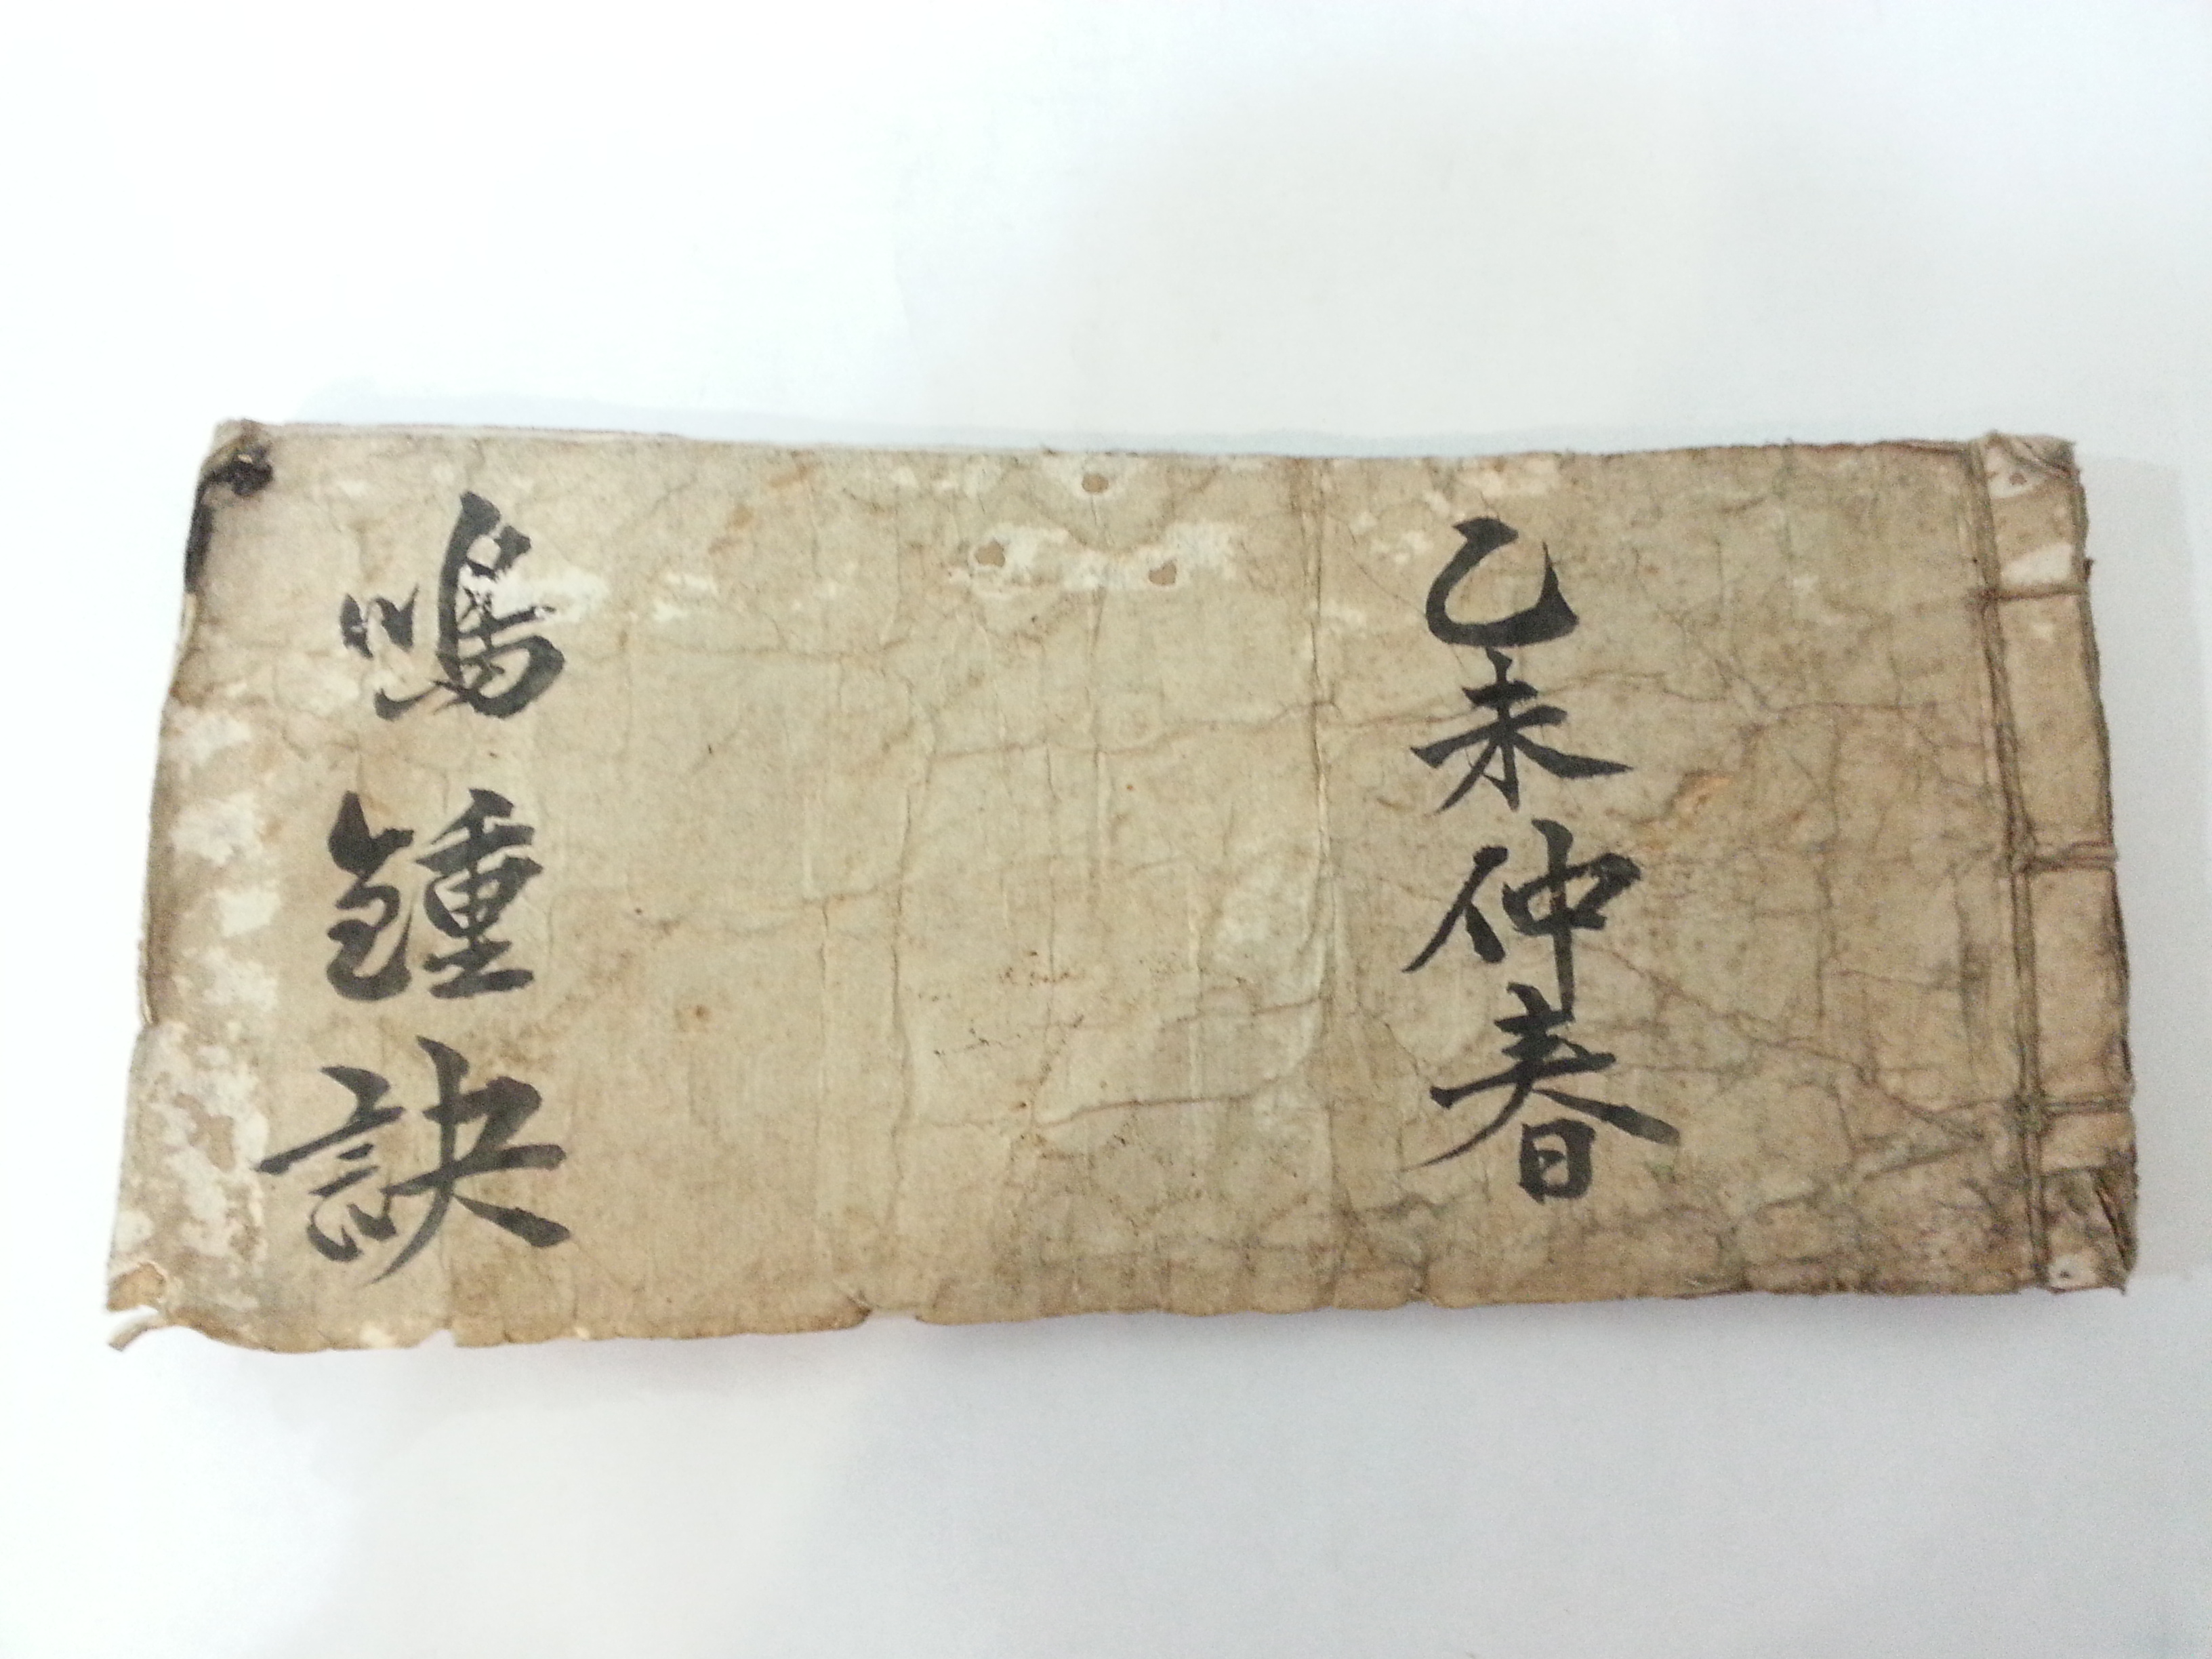 乙未仲春
鳴鍾訣